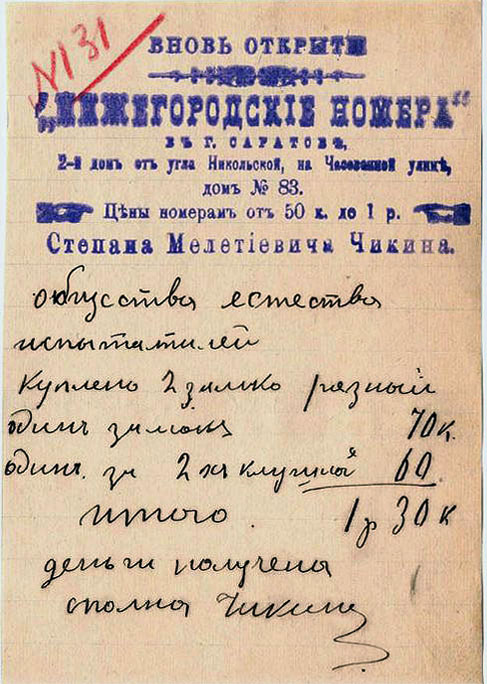 №131
ВНОВЬ ОТКРЫТЫ
„НИЖЕГОРОДСКІЕ НОМЕРА“
ВЪ Г. САРАТОВѢ,
2-й домъ отъ угла Никольской, на Часовенной улицѣ,
домъ № 83.
Цѣны номерамъ отъ 50 к. до 1 р.
Степана Мелетіевича Чикина.
общества естества
испытатилей
куплено 2 замко разный
одинъ замокъ 70 к.
одинъ за 2 хъ 60
итого 1 р 30 к
деньги получена
сполна Чикинъ